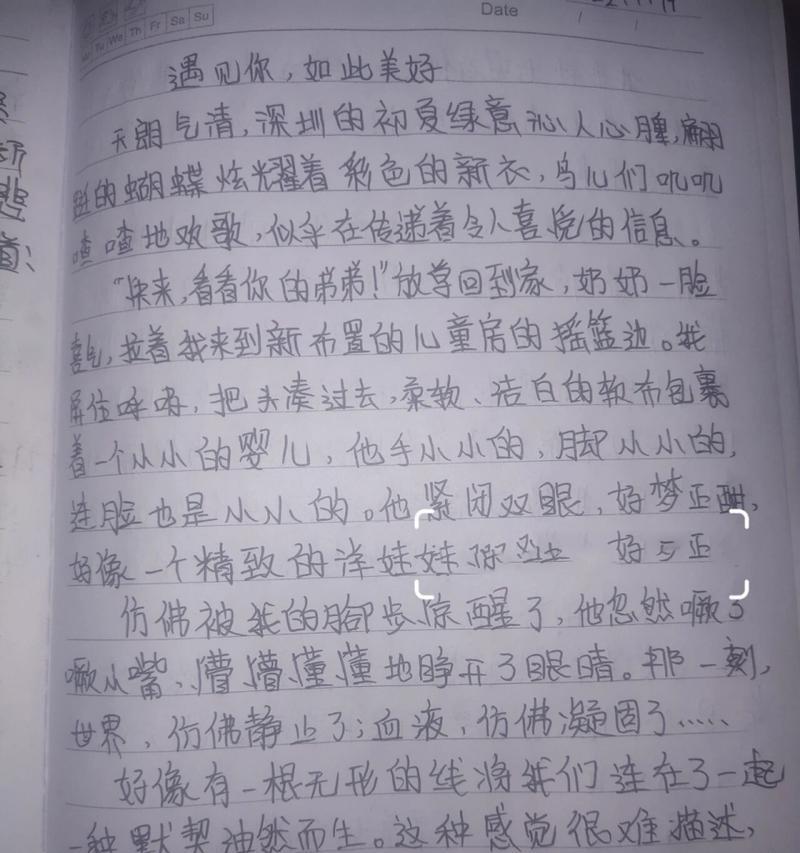 Tu We Th Fr Sa Su
Date
遇见你，如此美好
天朗气清，深圳的初夏绿意沁人心脾，翩
跹的蝴蝶炫耀着彩色的新衣，鸟儿们叽叽
喳喳地欢歌，似乎在传递着令人喜悦的信息。
“快来，看看你的弟弟！”放学回到家，奶奶一脸
喜气，拉着我来到新布置的儿童房的摇篮边。我
屏住呼吸，把头凑过去，柔软、洁白的软布包裹
着一个小小的婴儿，他手小小的，脚小小的，
连脸也是小小的。他紧闭双眼，好梦正酣，
好像一个精致的洋娃娃 好 正
仿佛被我的脚步惊醒了，他忽然噘了
噘小嘴、懵懵懂懂地睁开了眼睛。那一刻，
世界，仿佛静止了；血液，仿佛凝固了……
好像有一根无形的线将我们连在了一起
一种默契油然而生。这种感觉很难描述，